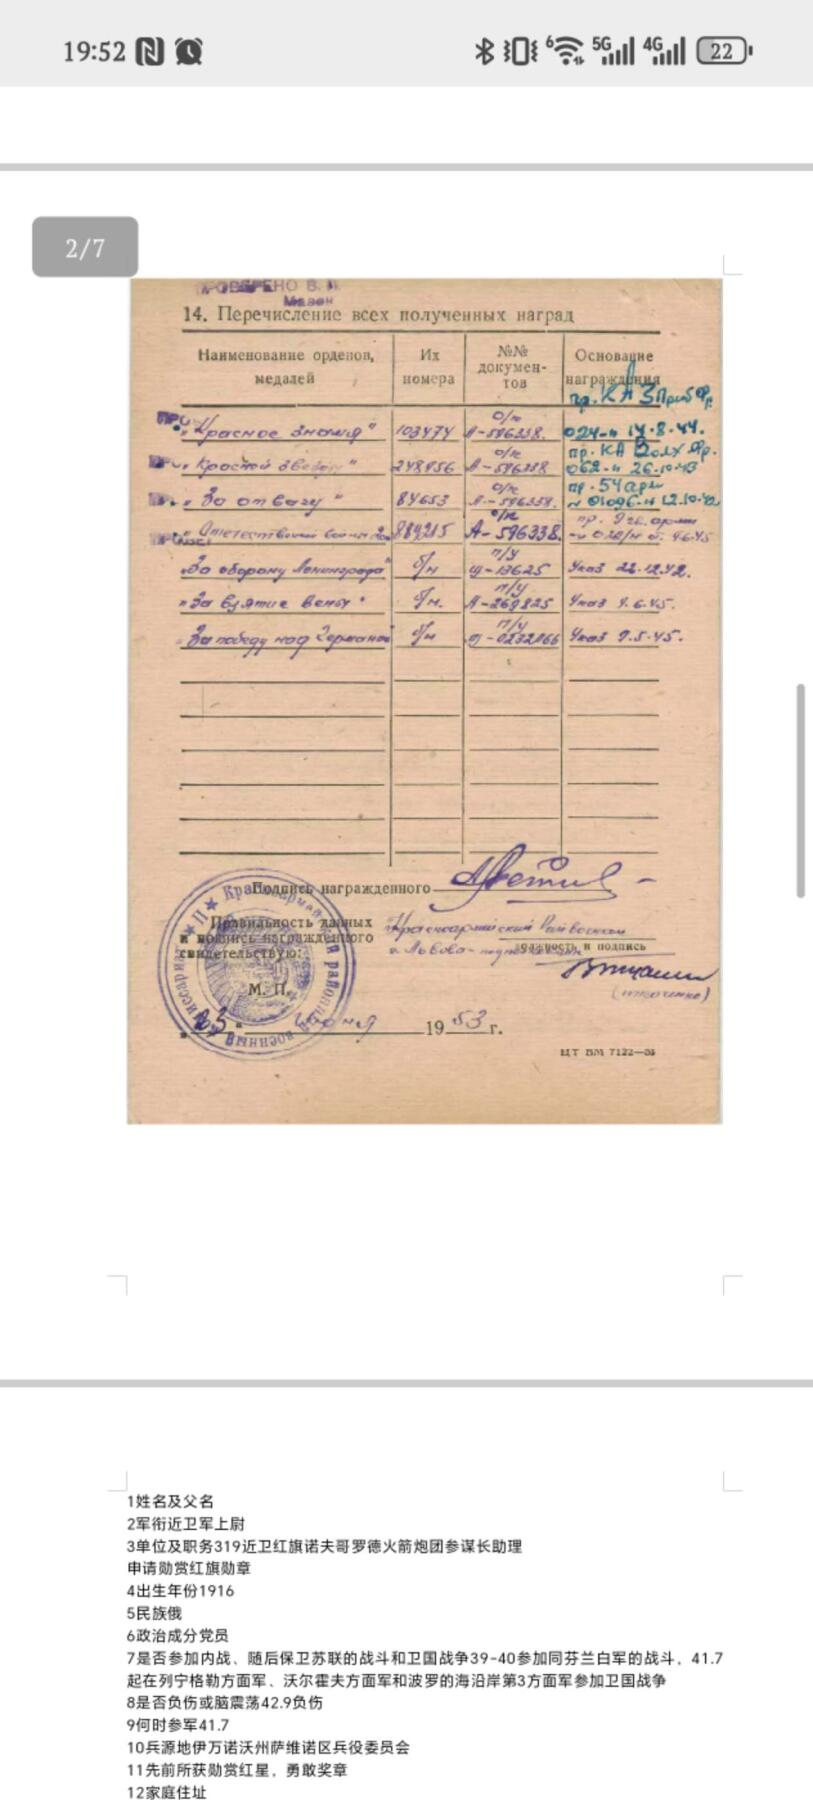 19:52 6 5G 4G 22
2/7
ПРОВЕРЕНО В.
14. Перечисление всех полученных наград
Наименование орденов, медалей
Их номера
№№ докумен-тов
Основание награждения
пр. КА 3 Приб Фр.
"Красное знамя" 103474 о/к А-596338. 024-н 14.8.44.
пр. КА Волх Фр.
"Красной звезды" 248956 о/к А-596338 062-н 26.10.43
пр. 54 арм
"За отвагу" 84653 о/к А-596338. 12.10.42
пр. 9 гв. армии
"Отечественной войны 2 884215 о/к А-596338.
"За оборону Ленинграда" б/н п/у 13625 Указ 22.12.42.
"За взятие Вены" б/н. п/у А-269825 Указ 9.6.45.
"За победу над Германией" б/н п/у 0232066 Указ 9.5.45.
Подпись награжденного
Правильность данных
и подпись награжденного
свидетельствую:
Красноармейский Райвоенком
г. Львова
должность и подпись
М. П.
(ткаченко)
"23" июня 1953 г.
ЦТ ВМ 7122—53
1姓名及父名
2军衔近卫军上尉
3单位及职务319近卫红旗诺夫哥罗德火箭炮团参谋长助理
申请勋赏红旗勋章
4出生年份1916
5民族俄
6政治成分党员
7是否参加内战、随后保卫苏联的战斗和卫国战争39-40参加同芬兰白军的战斗，41.7
起在列宁格勒方面军、沃尔霍夫方面军和波罗的海沿岸第3方面军参加卫国战争
8是否负伤或脑震荡42.9负伤
9何时参军41.7
10兵源地伊万诺沃州萨维诺区兵役委员会
11先前所获勋赏红星，勇敢奖章
12家庭住址